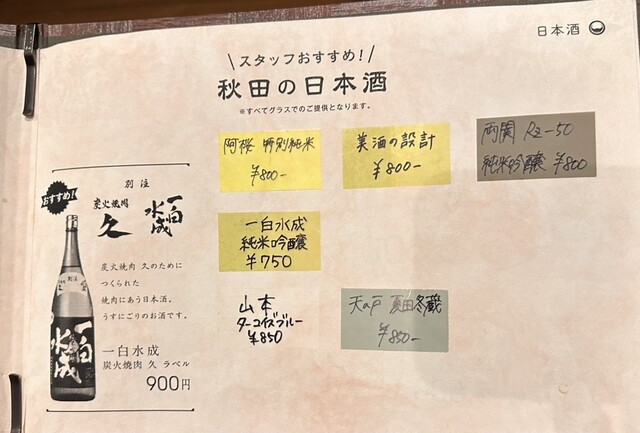 日本酒
\スタッフおすすめ!/
秋田の日本酒
※すべてグラスでのご提供となります。
阿櫻 特別純米
¥800-
美酒の設計
¥800-
両関 Rz-50
純米吟醸 ¥800
一白水成
純米吟醸
¥750
山本
ターコイズブルー
¥850
天の戸 夏田冬蔵
¥850-
おすすめ!
別注
炭火焼肉
久
一白
水成
炭火焼肉 久のために
つくられた
焼肉にあう日本酒。
うすにごりのお酒です。
一白水成
炭火焼肉 久 ラベル
900円
一白
水成